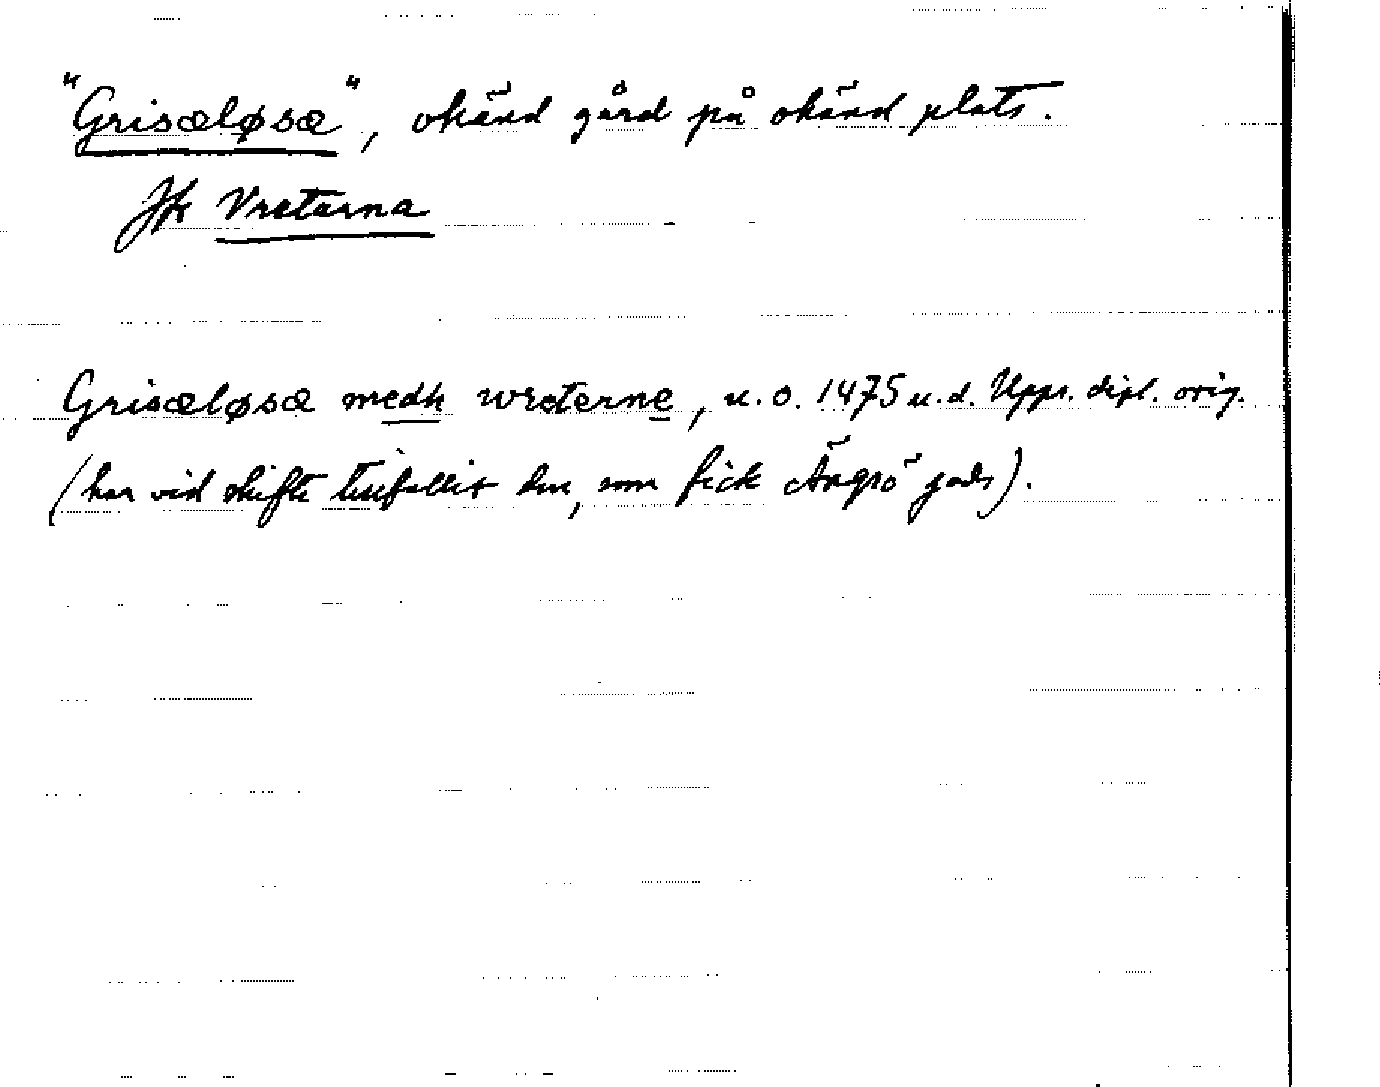 "Grisæløsæ", okänd gård på okänd plats.
Jfr Vretarna
Grisæløsæ medh wreterne, u.o. 1475 u.d. Upps. dipl. orig.
(har vid skifte tillfallit den, som fick Ängsö gods).